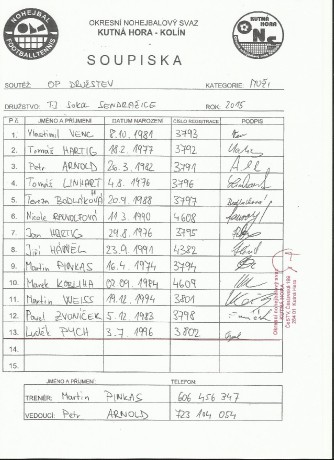 NOHEJBAL
FOOTBALLTENNIS
OKRESNÍ NOHEJBALOVÝ SVAZ
KUTNÁ HORA - KOLÍN
KUTNÁ HORA
SOUPISKA
SOUTĚŽ: OP DRUŽSTEV KATEGORIE: MUŽI
DRUŽSTVO: TJ Sokol SENDRAŽICE ROK: 2015
P.č. JMÉNO A PŘÍJMENÍ DATUM NAROZENÍ ČÍSLO REGISTRACE PODPIS
1. Vlastimil VENC 8.10.1981 3793
2. Tomáš HARTIG 18.2.1977 3792
3. Petr ARNOLD 26.3.1982 3791
4. Tomáš LINHART 4.8.1976 3796
5. Tereza BODLÁKOVÁ 20.9.1988 3797
6. Nicole 11.3.1990 4608
7. Jan HARTIG 29.8.1976 3795
8. Jiří 23.9.1991 4382
9. Martin PINKAS 16.4.1974 3794
10. Marek 02.09.1984 4609
11. Martin WEISS 19.12.1994 3801
12. Pavel ZVONÍČEK 5.12.1983 3798
13. Luděk PYCH 3.7.1996 3802
14.
15.
JMÉNO A PŘÍJMENÍ: TELEFON:
TRENÉR: Martin PINKAS 606 456 347
VEDOUCÍ: Petr ARNOLD 723 104 054
Okresní nohejbalový svaz
KUTNÁ HORA
284 01 Kutná Hora